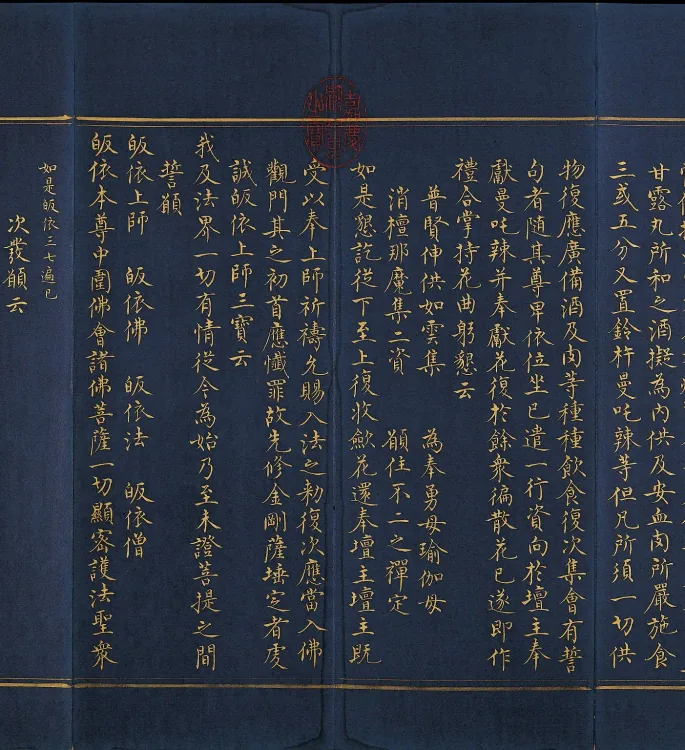 甘露丸所和之酒擬為內供及安血肉所嚴施食
三或五分又置鈴杵曼吒辣等但凡所須一切供
物復應廣備酒及肉等種種飲食復次集會有誓
句者隨其尊卑依位坐已遣一行資向於壇主奉
獻曼吒辣并奉獻花復於餘衆徧散花已遂即作
禮合掌持花曲躬懇云
普賢伸供如雲集　為奉勇母瑜伽母
消檀那魔集二資　願住不二之禪定
如是懇訖從下至上復收斂花還奉壇主壇主既
受以奉上師祈禱允賜入法之勑復次應當入佛
觀門其之初首應懺罪故先修金剛薩埵定者虔
誠皈依上師三寶云
我及法界一切有情從今為始乃至未證菩提之間
誓願
皈依上師　皈依佛　皈依法　皈依僧
皈依本尊中圍佛會諸佛菩薩一切顯密護法聖衆
如是皈依三七遍已
次發願云